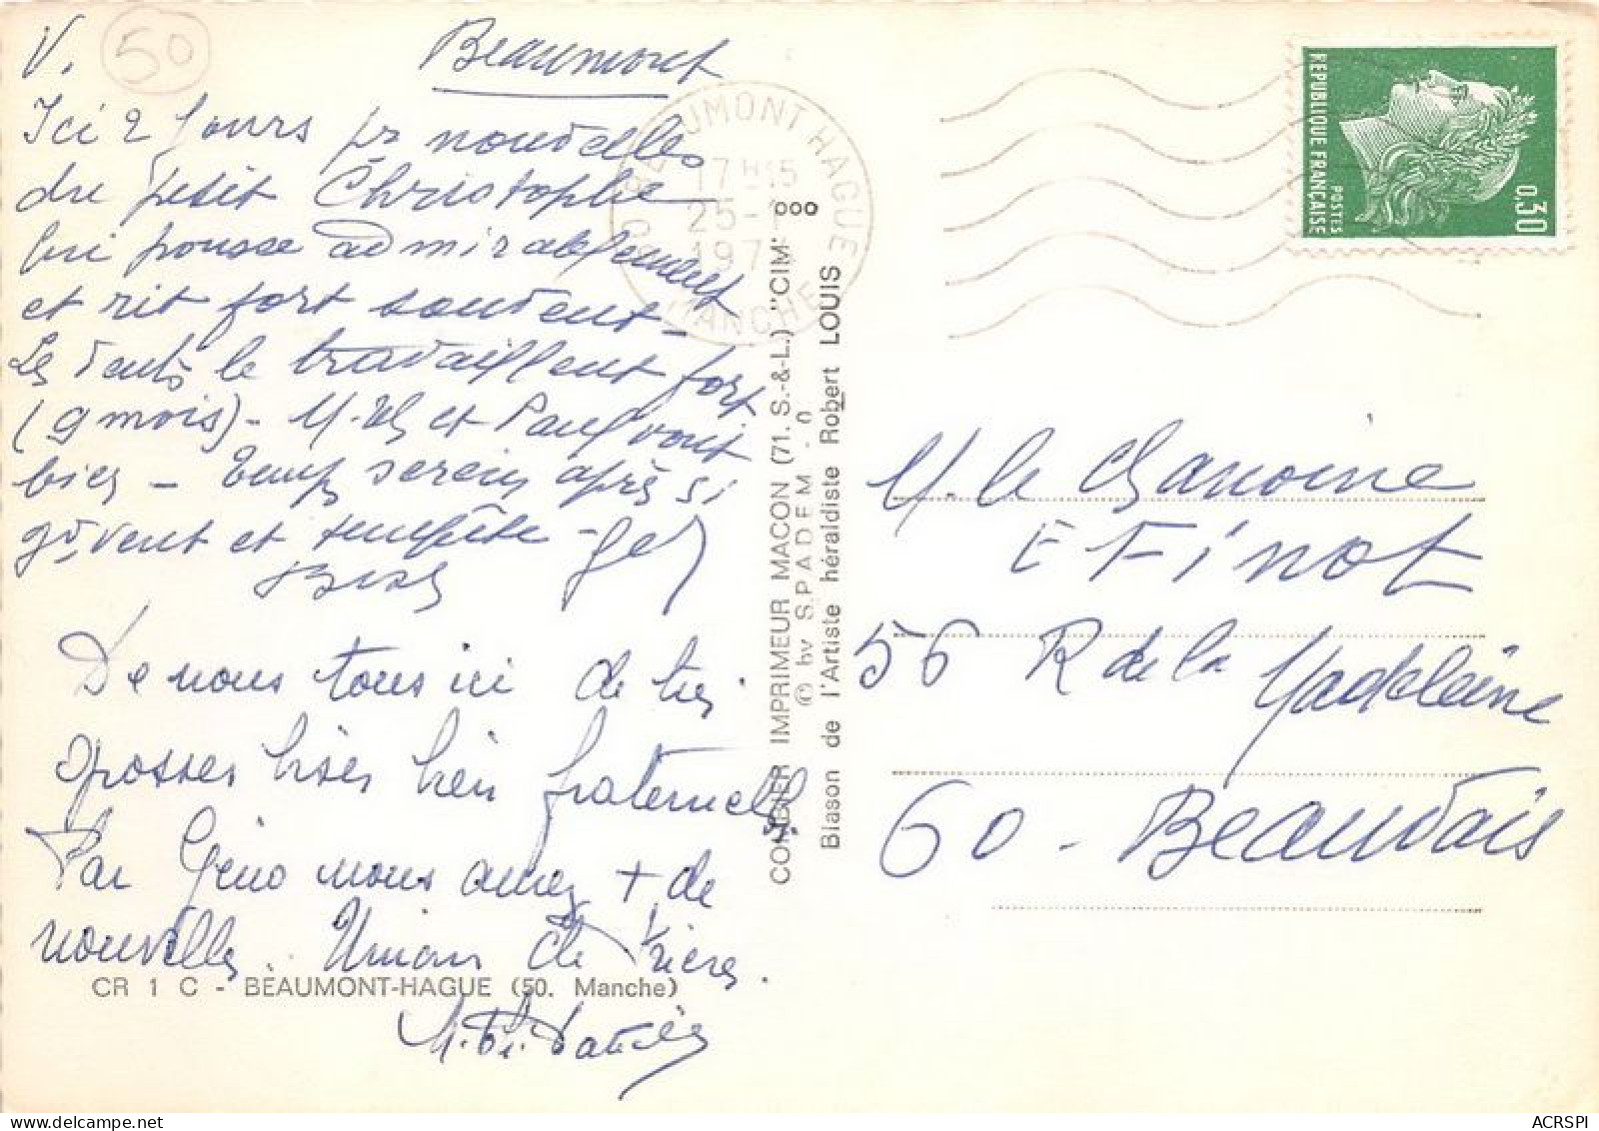 V. 50 Beaumont
Ici 2 jours pr nouvelles
du petit Christophe
lui pousse admirablement
et rit fort souvent -
Les dents le travaillent fort
(9 mois) - et Paul vont
bien - Temps serein après si
gd vent et tempête -
De nous tous ici de très
grosses bises bien fraternelles.
Par Géno nous avez + de
nouvelles. Union de Prières.
CR 1 C - BEAUMONT-HAGUE (50. Manche)
COMBIER IMPRIMEUR MACON (71. S.-&-L.) "CIM"
© by S.P.A.D.E.M.
Blason de l'Artiste héraldiste Robert LOUIS
BEAUMONT HAGUE
17 H 15
25 -
197
50 MANCHE
REPUBLIQUE FRANÇAISE
POSTES
0,30
M. le Chanoine
E FINOT
56 R de la Madeleine
60 - Beauvais
ACRSPI